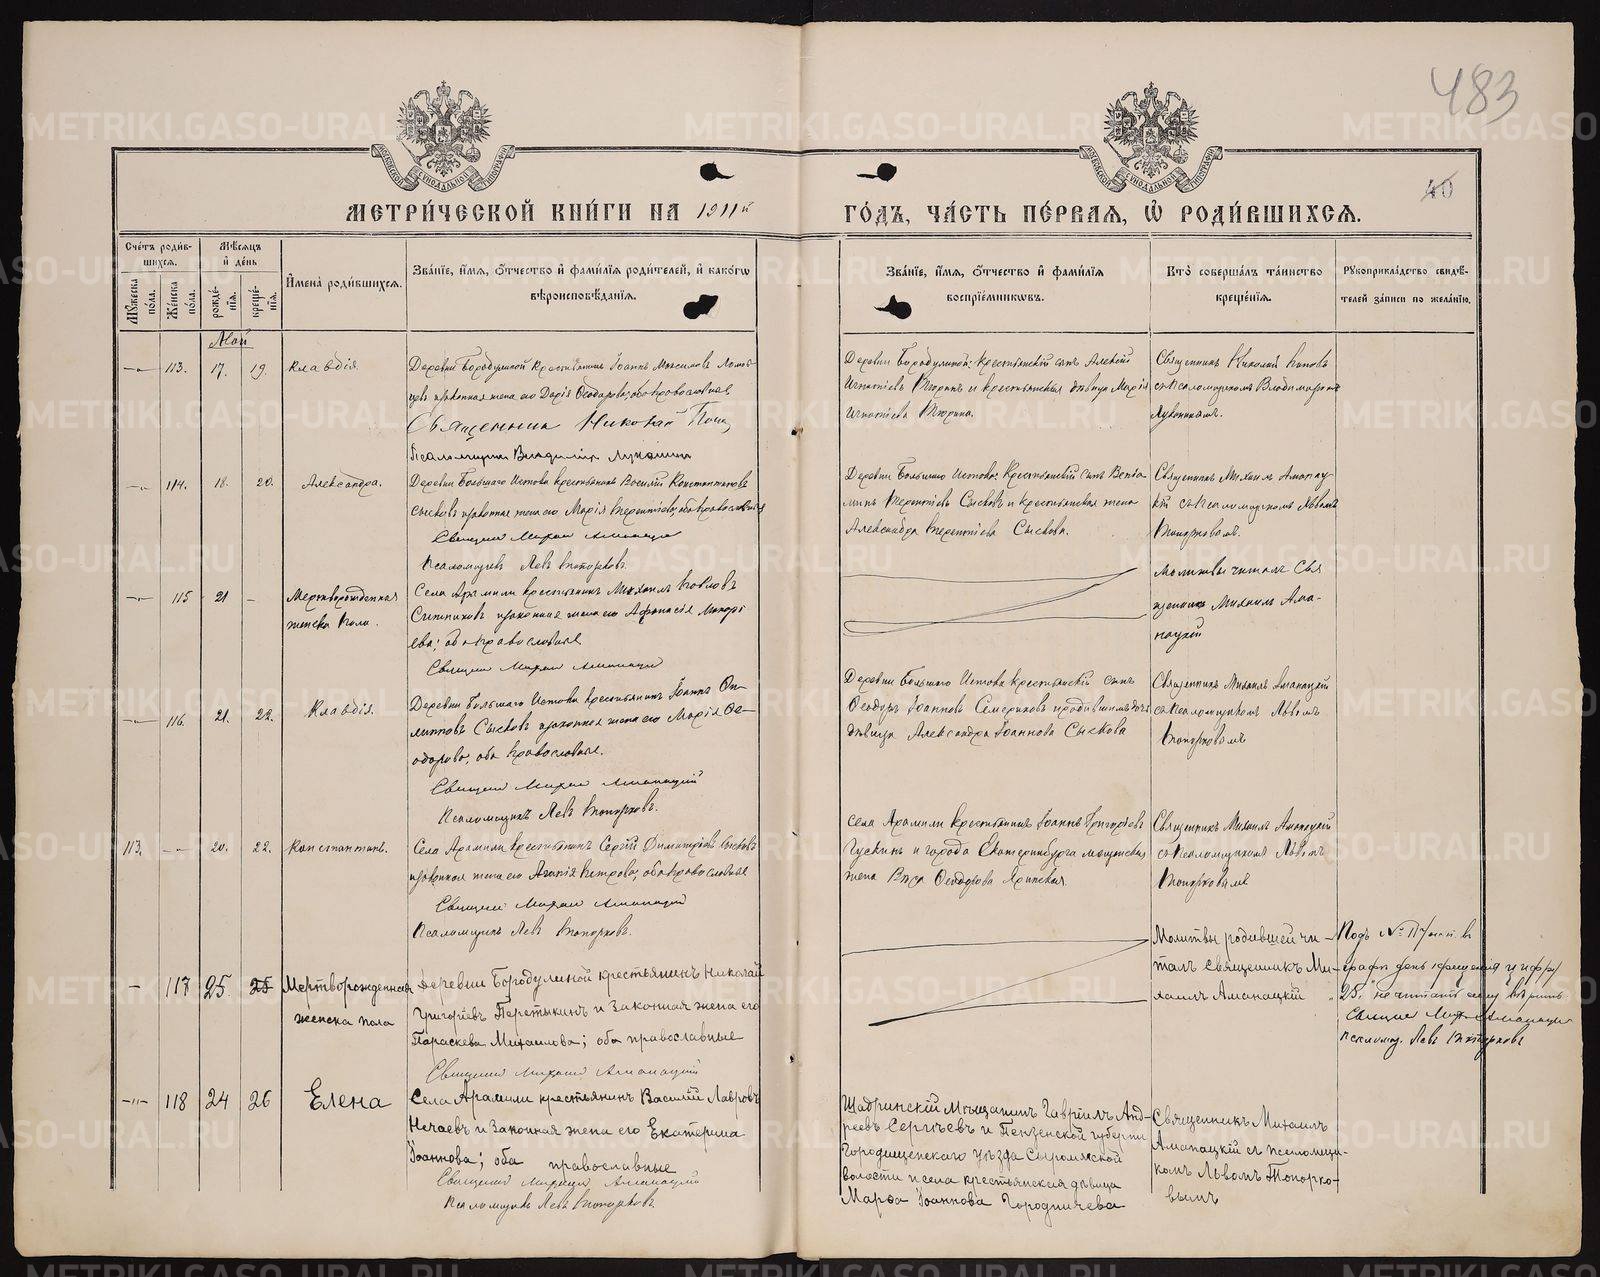 483
40
МЕТРИЧЕСКОЙ КНИГИ НА 1911й
ГОДЪ, ЧАСТЬ ПЕРВАЯ, Ѡ РОДИВШИХСЯ.
Счетъ родившихся.
Мужеска пола.
Женска пола.
Мѣсяцъ и день
рожденія.
крещенія.
Имена родившихся.
Званіе, имя, отчество и фамилія родителей, и какогѡ
вѣроисповѣданія.
Званіе, имя, отчество и фамилія
воспріемниковъ.
Кто совершалъ таинство
крещенія.
Рукоприкладство свидѣ-
телей записи по желанію.
Май
113. 17. 19. Клавдія
Деревни Бородулиной крестьянинъ Іоаннъ
законная жена его Дарія Ѳеодорова, оба православные
Священникъ Николай Поповъ
Псаломщикъ Владиміръ
Деревни Бородулиной крестьянскій сынъ Алексій
Игнатіевъ и крестьянская дѣвица Марія
Игнатіева
Священникъ Николай Поповъ
съ псаломщикомъ Владиміромъ
114. 18. 20. Александра.
Деревни Большаго Истока крестьянинъ Василій Константиновъ
Сысковъ и законная жена его Марія Терентіева, оба православные
Священникъ Михаилъ Аманацкій
Псаломщикъ Левъ Топорковъ.
Деревни Большаго Истока крестьянскій сынъ
Терентіевъ Сысковъ и крестьянская жена
Александра Терентіева Сыскова.
Священникъ Михаилъ Аманац-
кій съ псаломщикомъ Львомъ
Топорковымъ.
115 21 - Мертворожденная
женска пола.
Села Арамили крестьянинъ Михаилъ Павловъ
Ситниковъ и законная жена его Аѳанасія Макарі-
ева; оба православные
Священникъ Михаилъ Аманацкій
Молитвы читалъ Свя
щенникъ Михаилъ Ама-
нацкій
116. 21. 22. Клавдія.
Деревни Большаго Истока крестьянинъ Іоаннъ
Сысковъ и законная жена его Марія Ѳе-
одорова, оба православные.
Священникъ Михаилъ Аманацкій
Псаломщикъ Левъ Топорковъ.
Деревни Большаго Истока крестьянскій сынъ
Ѳеодоръ Іоанновъ Семериковъ
дѣвица Александра Іоаннова Сыскова
Священникъ Михаилъ Аманацкій
съ псаломщикомъ Львомъ
Топорковымъ
113. 20. 22. Константинъ.
Села Арамили крестьянинъ Сергій Димитріевъ
и законная жена его Агапія Петрова, оба православные
Священникъ Михаилъ Аманацкій
Псаломщикъ Левъ Топорковъ.
Села Арамили крестьянинъ Іоаннъ Григоріевъ
Гускинъ и города Екатеринбурга мѣщанская
жена Вѣра Ѳеодорова
Священникъ Михаилъ Аманацкій
съ псаломщикомъ Львомъ
Топорковымъ
117 25 25 Мертворожденная
женска пола
Деревни Бородулиной крестьянинъ Николай
Григоріевъ Перетыкинъ и законная жена его
Параскева Михаилова; оба православные
Священникъ Михаилъ Аманацкій
Молитвы родившей чи-
талъ священникъ Ми-
хаилъ Аманацкій
Подъ № 117 въ
графѣ день крещенія цифру
25. не читать
Священникъ Мих. Аманацкій
псаломщ. Левъ Топорковъ
118 24 26 Елена
Села Арамили крестьянинъ Василій Лавровъ
Нечаевъ и законная жена его Екатерина
Іоаннова; оба православные
Священникъ Михаилъ Аманацкій
Псаломщикъ Левъ Топорковъ
Шадринскій мѣщанинъ Гавріилъ Анд-
реевъ Сергѣевъ и Пензенской губерніи
Городищенскаго уѣзда
волости и села крестьянская дѣвица
Марѳа Іоаннова Городничева
Священникъ Михаилъ
Аманацкій съ псаломщи-
комъ Львомъ Топорко-
вымъ
METRIKI.GASO-URAL.RU